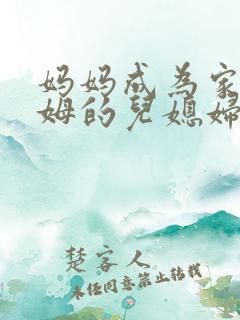 妈妈成为家
姆的兒媳婦
楚客人
未经同意禁止转载